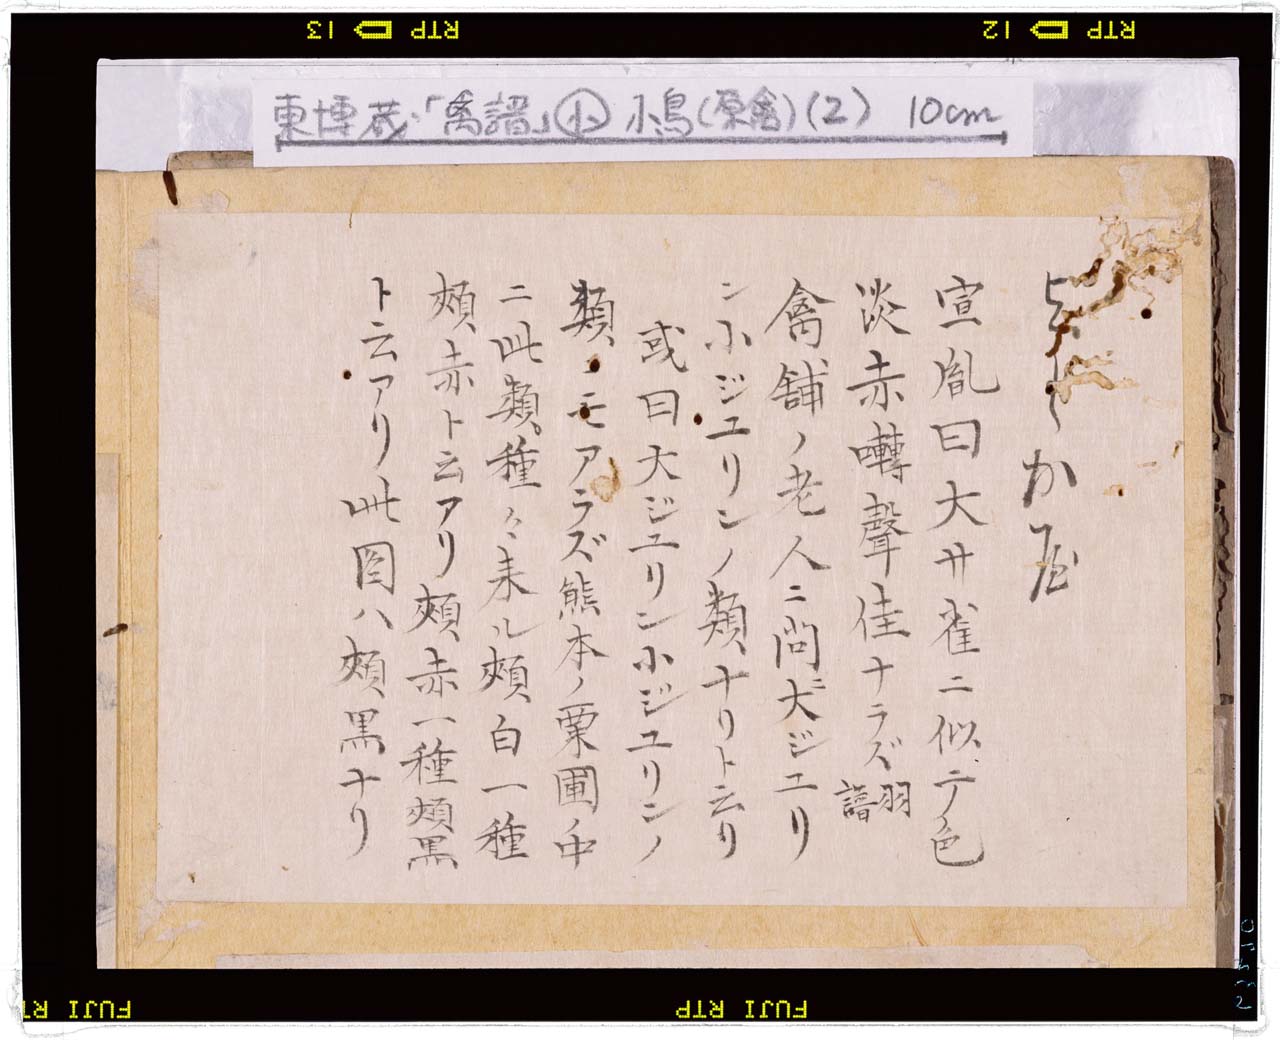 東博蔵・「禽譜」㊦ 小鳥(原禽)(2) 10cm
よしか
宣胤曰大サ雀ニ似テ色
淡赤囀聲佳ナラズ羽譜
禽舗ノ老人ニ問ニ大ジユリ
ン小ジユリンノ類ナリト云リ
或曰大ジユリン小ジユリンノ
類ノモアラズ熊本ノ粟圃ノ中
ニ此類種々来ル頬白一種
頬赤ト云アリ頬赤一種頬黒
ト云アリ此圖ハ頬黒ナリ
RTP 12
RTP 13
FUJI RTP
FUJI RT